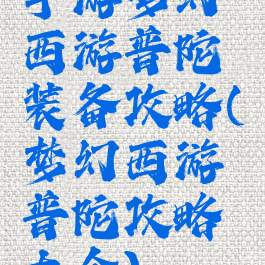 手游梦幻
西游普陀
装备攻略(
梦幻西游
普陀攻略